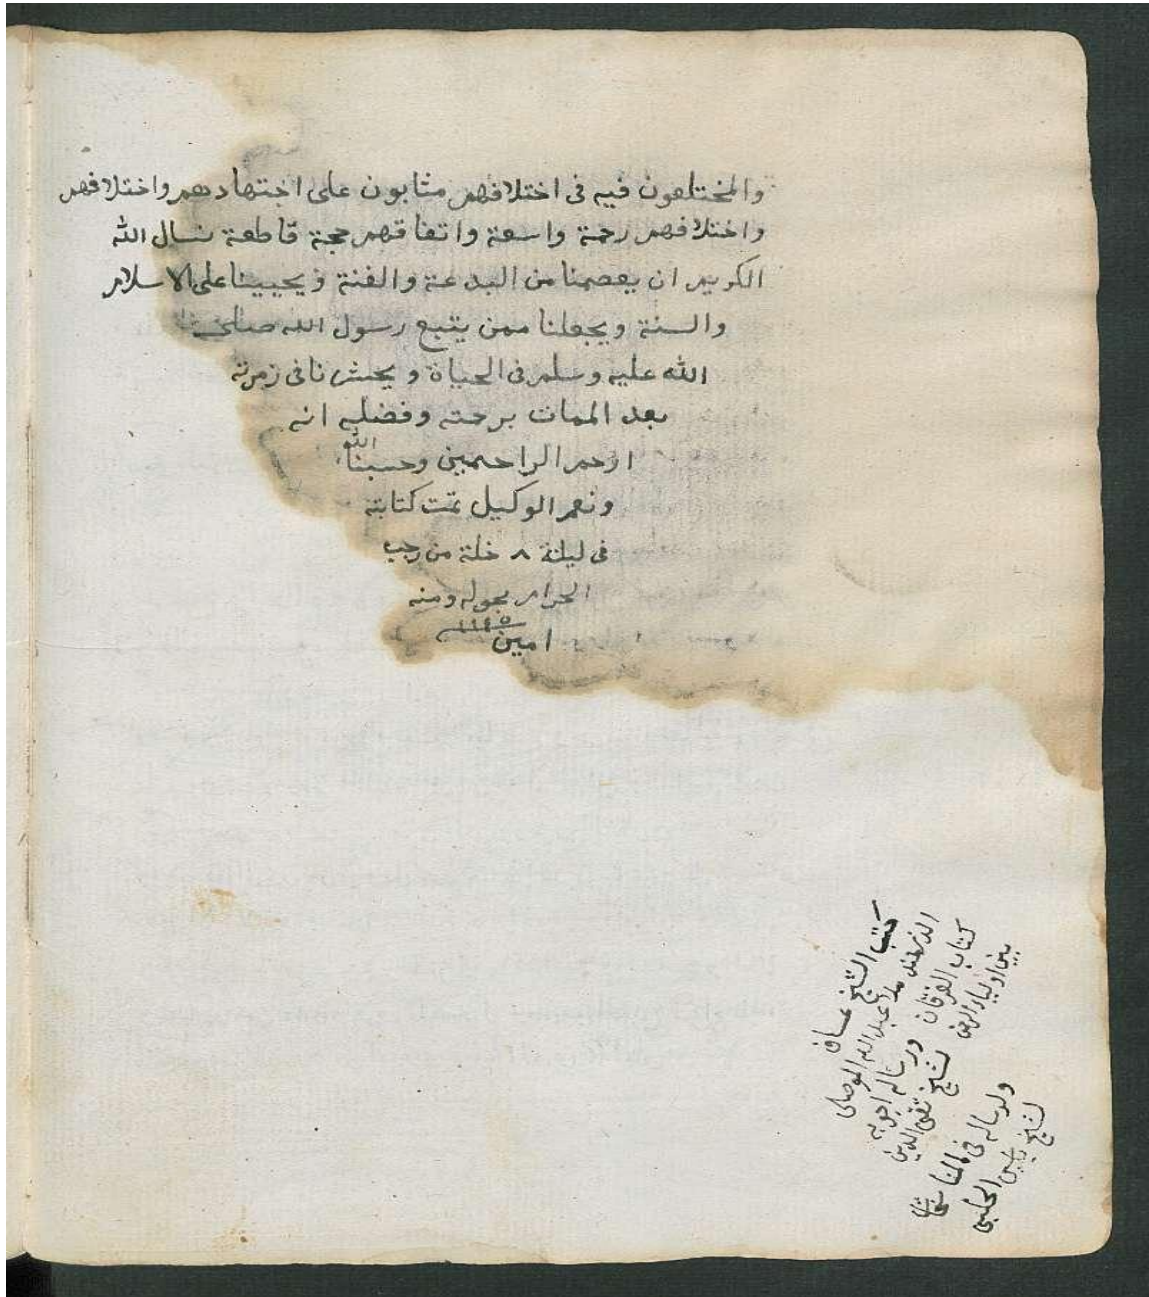 والمختلفون فيه فى اختلافهم مثابون على اجتهادهم واختلافهم
واختلافهم رحمة واسعة واتفاقهم حجة قاطعة نسال الله
الكريم ان يعصمنا من البدعة والفتنة ويحيينا على الاسلام
والسنة ويجعلنا ممن يتبع رسول الله صلى
الله عليه وسلم فى الحياة ويحشرنا فى زمرته
بعد الممات برحمته وفضله انه
ارحم الراحمين وحسبنا الله
ونعم الوكيل تمت كتابته
فى ليلة ٨ خلة من رجب
الحرام بحوله ومنه
امين
كتب الشيخ عساف
الذى عند ملا عبد الله الموصلى
كتاب الفرقان ورساله اجوبه
بين اولياء الرحمن لشيخ تقى الدين
ولرساله فى
لشيخ ياسين الحلبى